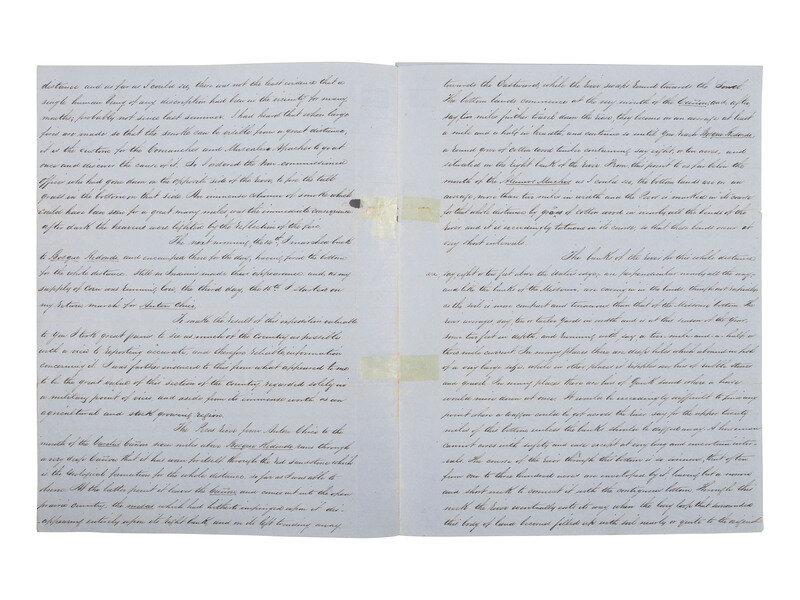 distance and as far as I could see, there was not the least evidence that a
single human being of any description had been in the vicinity for many
months, probably not since last summer. I had heard that when large
fires are made so that the smoke can be visible from a great distance,
it is the custom for the Comanches and Mescalero Apaches to go at
once and discover the cause of it. So I ordered the Non commissioned
officer who had gone down on the opposite side of the river, to fire the tall
grass in the bottoms on that side. An immense column of smoke which
could have been seen for a great many miles was the immediate consequence
after dark the heavens were lighted by the reflection of the fire.
The next morning, the 14th, I marched back
to Bosque Redondo, and encamped there for the day, having fired the bottom
for the whole distance. Still no Indians made their appearance and, as my
supply of corn was running low, the third day, the 15th I started on
my return march for Anton Chico.
To make the result of this expedition valuable
to you I took great pains to see as much of the country as possible
with a view to reporting accurate and therefore reliable information
concerning it. I was further induced to this from what appeared to me
to be the great value of this section of the country, regarded solely in
a military point of view and aside from its immense worth as an
agricultural and stock growing region.
The Pecos river from Anton Chico to the
mouth of the Cañon some miles above Bosque Redondo runs through
a very deep Cañon that it has worn for itself through the red sandstone which
is the Geological formation for the whole distance, so far as I was able to
observe. At the latter point it leaves the Cañon and comes out into the open
prairie country, the mesas which had hitherto impinged upon it dis-
appearing entirely upon its right bank, and on its left tending away
towards the Eastward, while the river sweeps round towards the South.
The bottom lands commence at the very mouth of the Cañon, and after
say two miles further travel down the river, they become on an average at least
a mile and a half in breadth, and continue so until you reach Bosque Redondo,
a round grove of cotton wood timber containing say eight or ten acres, and
situated on the right bank of the river. From this point to as far below the
mouth of the Alamos Muchos as I could see, the bottom lands are on an
average more than two miles in width and the river is marked in its course
for that whole distance by groves of cotton wood in nearly all the bends of the
river, and it is exceedingly tortuous in its course, so that these bends occur at
very short intervals.
The banks of the river for this whole distance
say eight or ten feet above the water's edge, are perpendicular nearly all the way
and like the banks of the Missouri, are caving in in the bends, though not so rapidly
as the soil is more compact and tenacious than that of the Missouri bottom. The
river averages say ten or twelve yards in width and is at this season of the year,
some two feet in depth, and running with say a two mile and a half or
three mile current. In many places there are deep holes which abound in fish
of a very large size, while in other places it ripples over bars of small stones
and gravel. In many places there are bars of Quick sand where a horse
would mire down at once. It would be exceedingly difficult to find any
point where a waggon could be got across the river say for the upper twenty
miles of this bottom unless the banks should be dug down away. A horseman
cannot cross with safety and ease except at very long and uncertain inter-
vals. The course of the river through this bottom is so sinuous, that often
from one to three hundred acres are enveloped by it leaving but a narrow
and short neck to connect it with the contiguous bottom. Through this
neck the river eventually cuts its way when the long loop that surrounded
this body of land becomes filled up with soil nearly or quite to the original